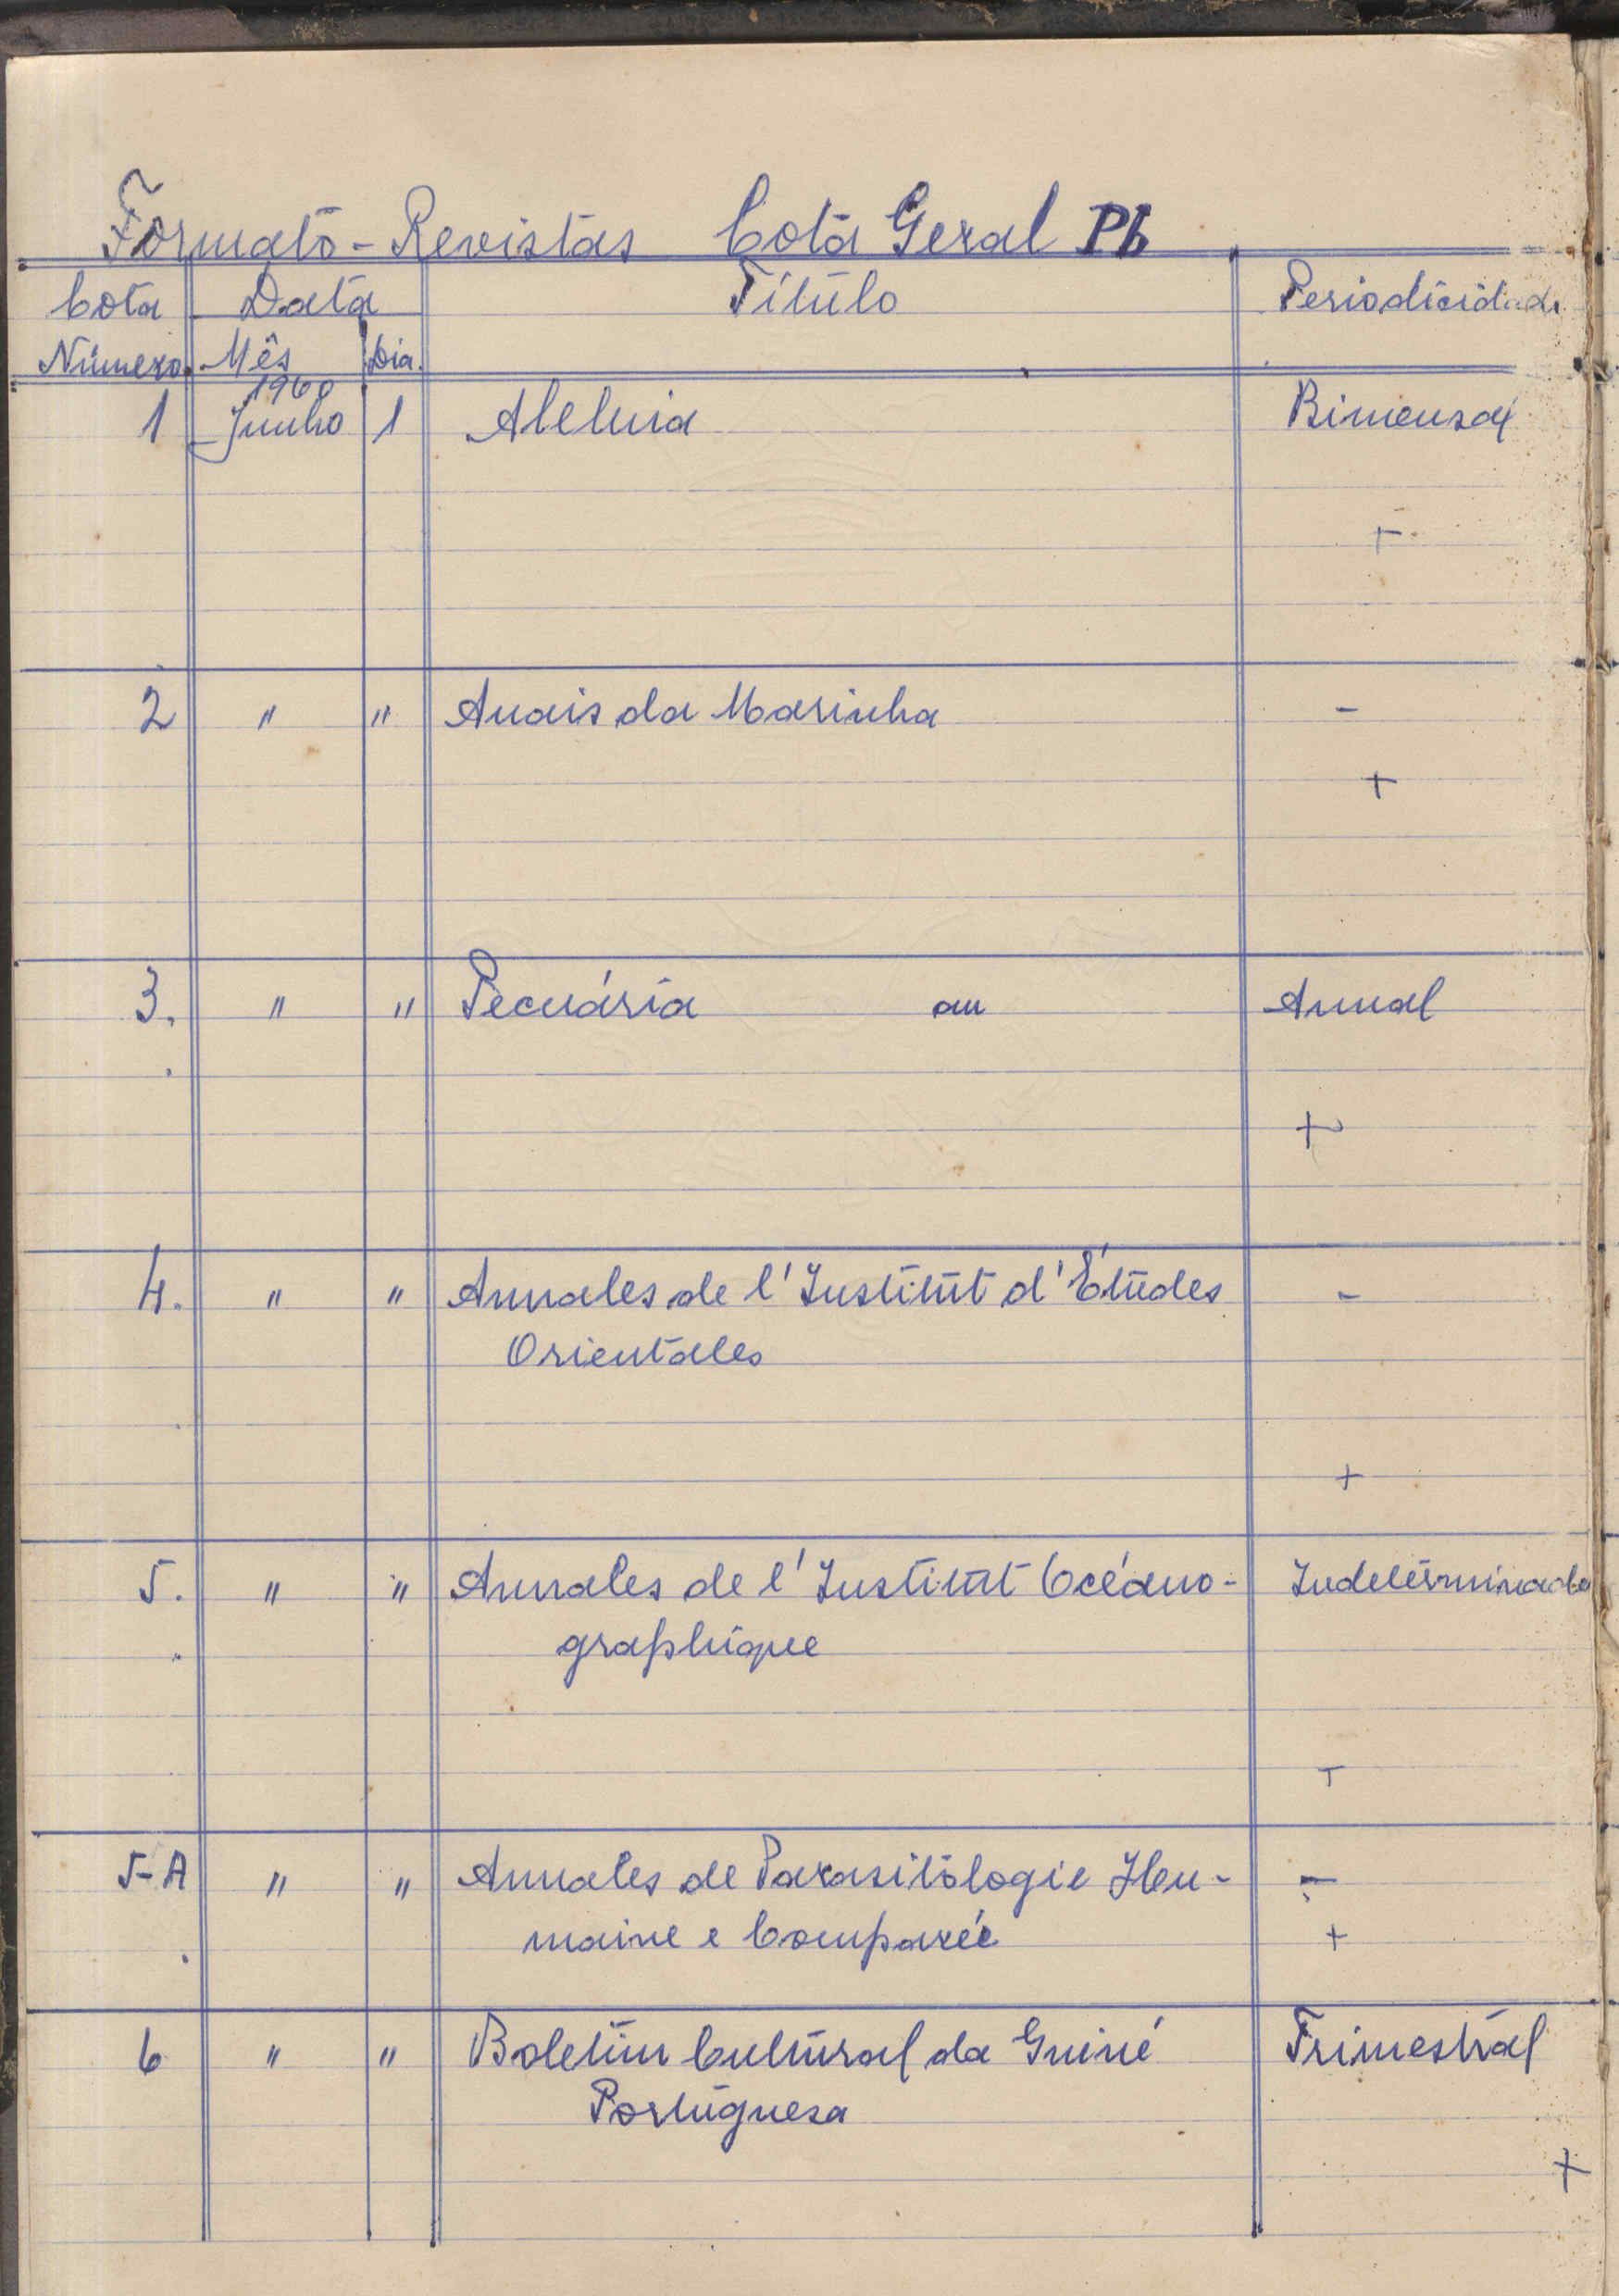 Formato - Revistas Cota Geral Pb
Cota Data Título Periodicidade
Número Mês Dia
1960
1 Junho 1 Aleluia Bimensal
+
2 " " Anais da Marinha -
+
3. " " Pecuária an Annual
+
4. " " Annales de l'Institut d'Études -
Orientales
+
5. " " Annales de l'Institut Océano- Indeterminado
graphique
+
5-A " " Annales de Parasitologie Hu- -
maine e Comparée +
6 " " Boletim Cultural da Guiné Trimestral
Portuguesa
+